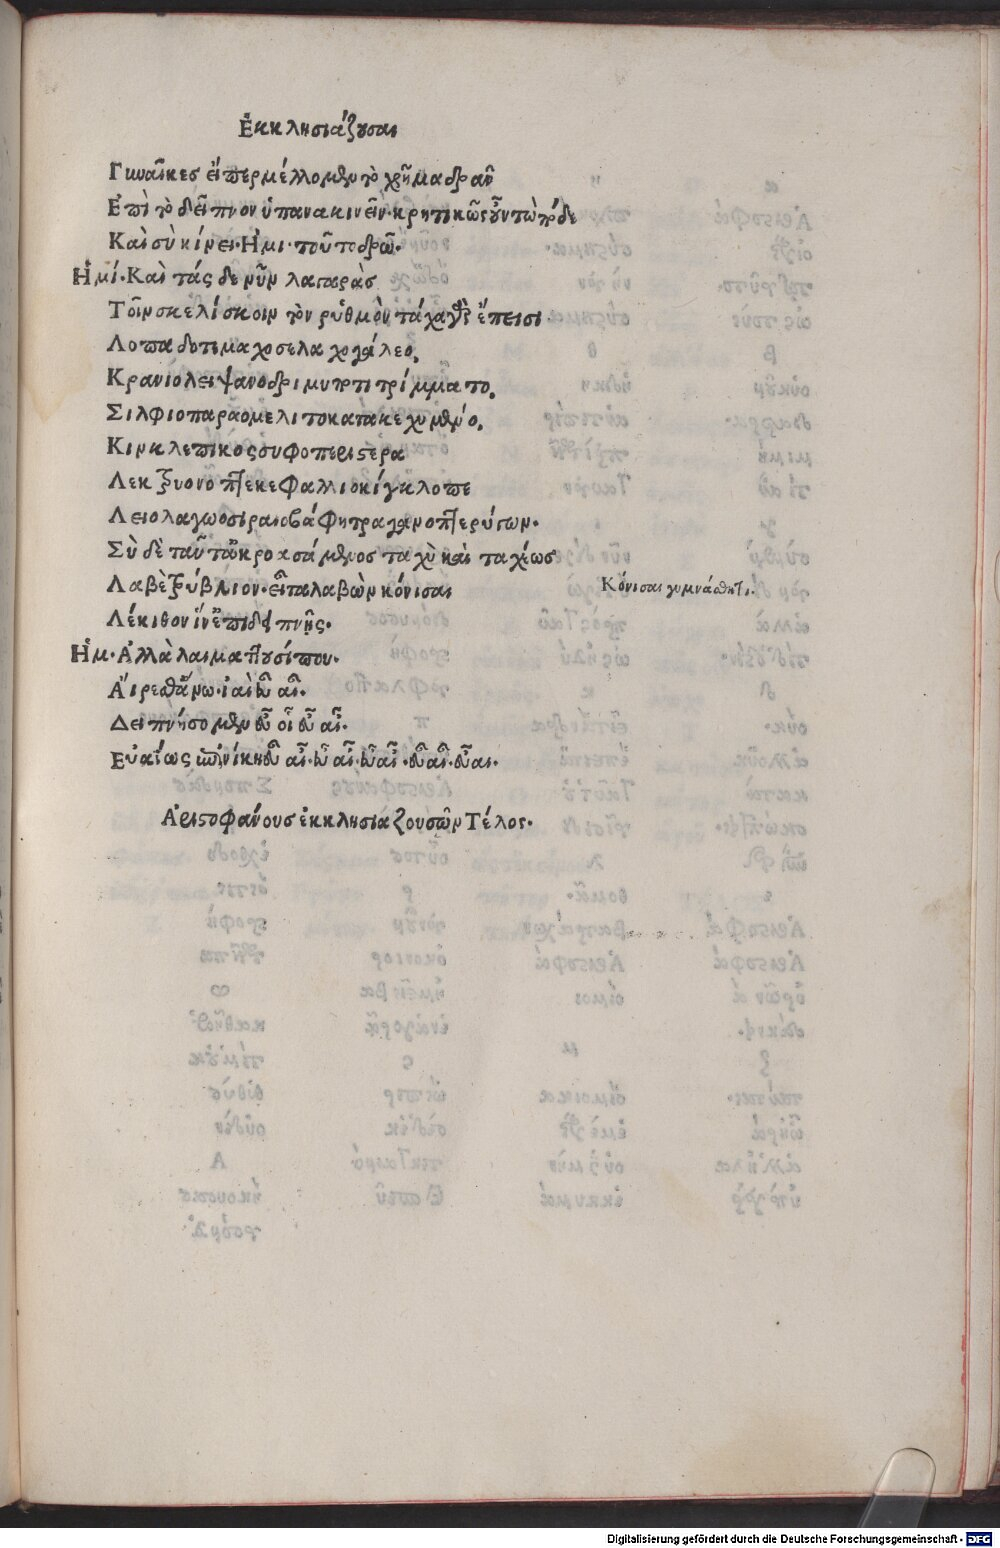 Ἐκκλησιάζουσαι
Γυναῖκες εἴπερ μέλλομεν τὸ χρῆμα δρᾶν
Ἐπὶ τὸ δεῖπνον ὑπανακινεῖν· κρητικῶς οὖν τὼ πόδε
Καὶ σὺ κίνει· Ἡμι· τοῦτο δρῶ.
Ἡμί· Καὶ τάς δε νῦν λαγαρὰσ
Τοῖν σκελίσκοιν τὸν ρὐθμὸν τάχα γὰρ ἔπεισι·
Λοπαδοτιμαχοσελαχογάλεο,
Κρανιολειψανοδριμυποτιτρίμματο,
Σιλφιοπαραομελιτοκατακεχυμένο,
Κιγκλεπικοσσυφοπεριστερα
Λεκτρυονοπτεκεφαλλιοκίγκλοπε
Λειολαγωοσιραιοβάφητραγανοπτερύγων·
Σὺ δὲ ταῦτ ἀκροασάμενος ταχὺ καὶ ταχέως
Λαβὲ τρύβλιον· εἶτα λαβὼν κόνισαι
Κόνισαι γυμνάσθητι.
Λέκιθον ἵν ἐπιδειπνῇς·
Ἡμ· Ἀλλὰ λαιμάττουσί που·
Αἴρεσθ ἄνω· ἰαὶ εὖ αἶ·
Δειπνήσομεν εὖ οἶ εὖ αἶ·
Εὐαίως ἐπὶ νίκη εὖ αἶ· εὖ αἶ· εὖ αἶ· εὖ αἶ· εὖ αι·
Ἀριστοφάνους ἐκκλησιαζουσῶν Τέλος·
Digitalisierung gefördert durch die Deutsche Forschungsgemeinschaft - DFG